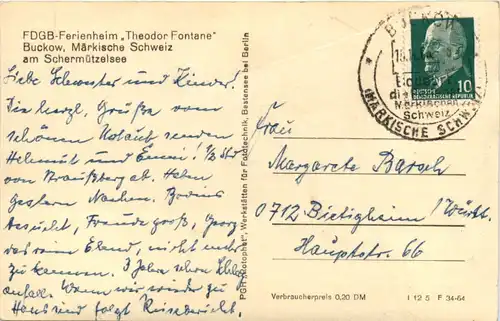 FDGB-Ferienheim „Theodor Fontane"
Buckow, Märkische Schweiz
am Schermützelsee
Liebe Schwester und Kinder!
Die herzl. Grüße vom
schönen Urlaub senden
Helmut und Emmi! ½ Std
von Straußberg ab. Haben
gestern Nachm.
besucht, Freude groß, Georg
das reine Elend, nicht mehr
zu kennen. 3 Jahre schon Schlag-
anfall. Wenn wir wieder zu
Haus sind folgt Reisebericht.
PGH „Rotophot", Werkstätten für Fototechnik, Bestensee bei Berlin
BUCKOW
Märkischen
Schweiz
(MÄRKISCHE SCHWEIZ)
DEUTSCHE
DEMOKRATISCHE REPUBLIK
10
Frau
Margarete Barsch
0712 Bietigheim/Württ.
Hauptstr. 66
Verbraucherpreis 0,20 DM
I 12 5 F 34-64